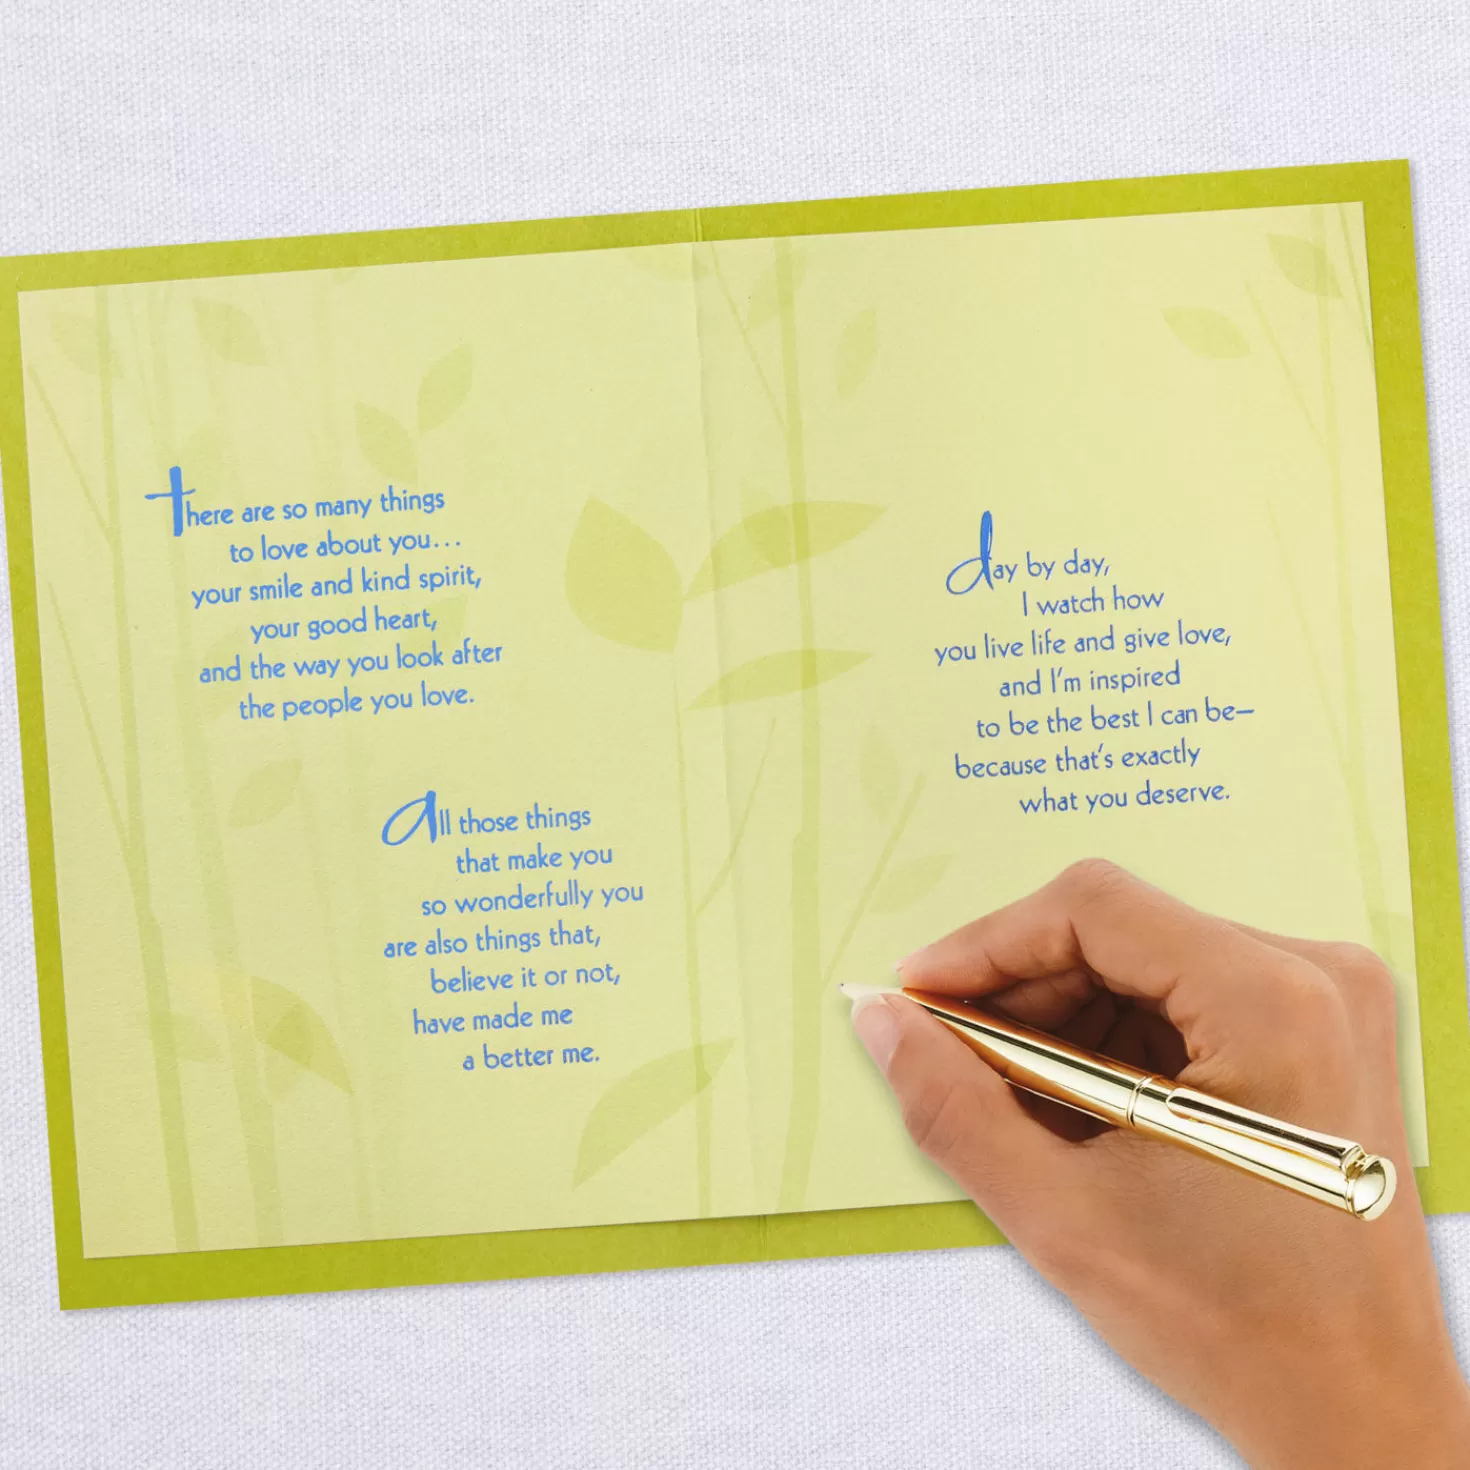 there are so many things
to love about you...
your smile and kind spirit,
your good heart,
and the way you look after
the people you love.
All those things
that make you
so wonderfully you
are also things that,
believe it or not,
have made me
a better me.
day by day,
I watch how
you live life and give love,
and I'm inspired
to be the best I can be—
because that's exactly
what you deserve.